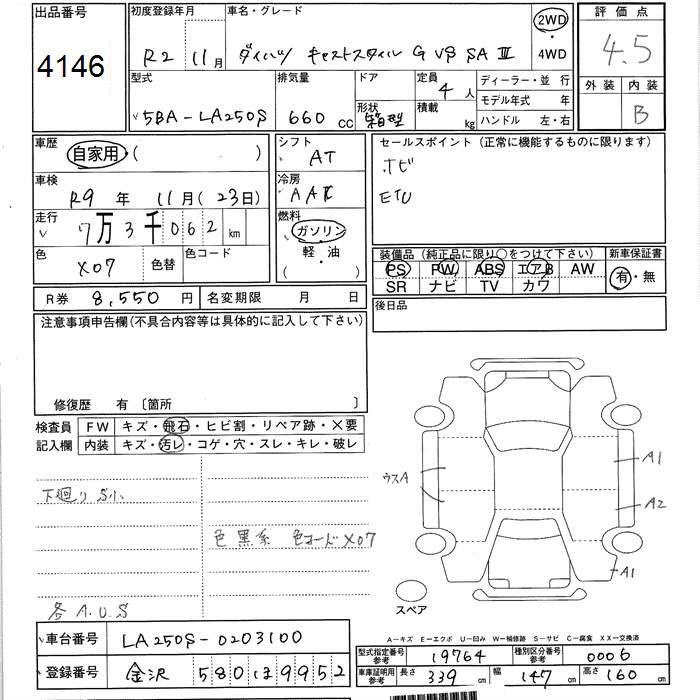 出品番号 初度登録年月 車名・グレード 2WD 評価点
4146 R2 11月 ダイハツ キャストスタイル G VS SA Ⅲ 4WD 4.5
型式 排気量 ドア 定員 4人 ディーラー・並行 外装 内装
5BA-LA250S 660cc 形状 箱型 積載 kg モデル年式 年 B
ハンドル 左・右
車歴 自家用 ( ) シフト AT セールスポイント (正常に機能するものに限ります)
車検 R9年 11月(23日) 冷房 AAC ナビ
ETC
走行 7万3千062km 燃料 ガソリン 軽・油 ( )
色 X07 色替 色コード 装備品 (純正品に限り○をつけて下さい) 新車保証書
PS PW ABS エアB AW 有・無
SR ナビ TV カワ
R券 8,550円 名変期限 月 日 後日品
注意事項申告欄(不具合内容等は具体的に記入して下さい)
修復歴 有 〔箇所
検査員 FW キズ・飛石・ヒビ割・リペア跡・X要
記入欄 内装 キズ・汚レ・コゲ・穴・スレ・キレ・破レ
下廻り S小
色 黒系 色コードX07
各A.U.S
ウスA
A1
A2
A1
スペア
A―キズ E―エクボ U―凹み W―補修跡 S―サビ C―腐食 XX―交換済
車台番号 LA250S-0203100 型式指定番号 参考 19764 種別区分番号 参考 0006
登録番号 金沢 580ほ9952 車庫証明用 参考 長さ 339cm 幅 147cm 高さ 160cm